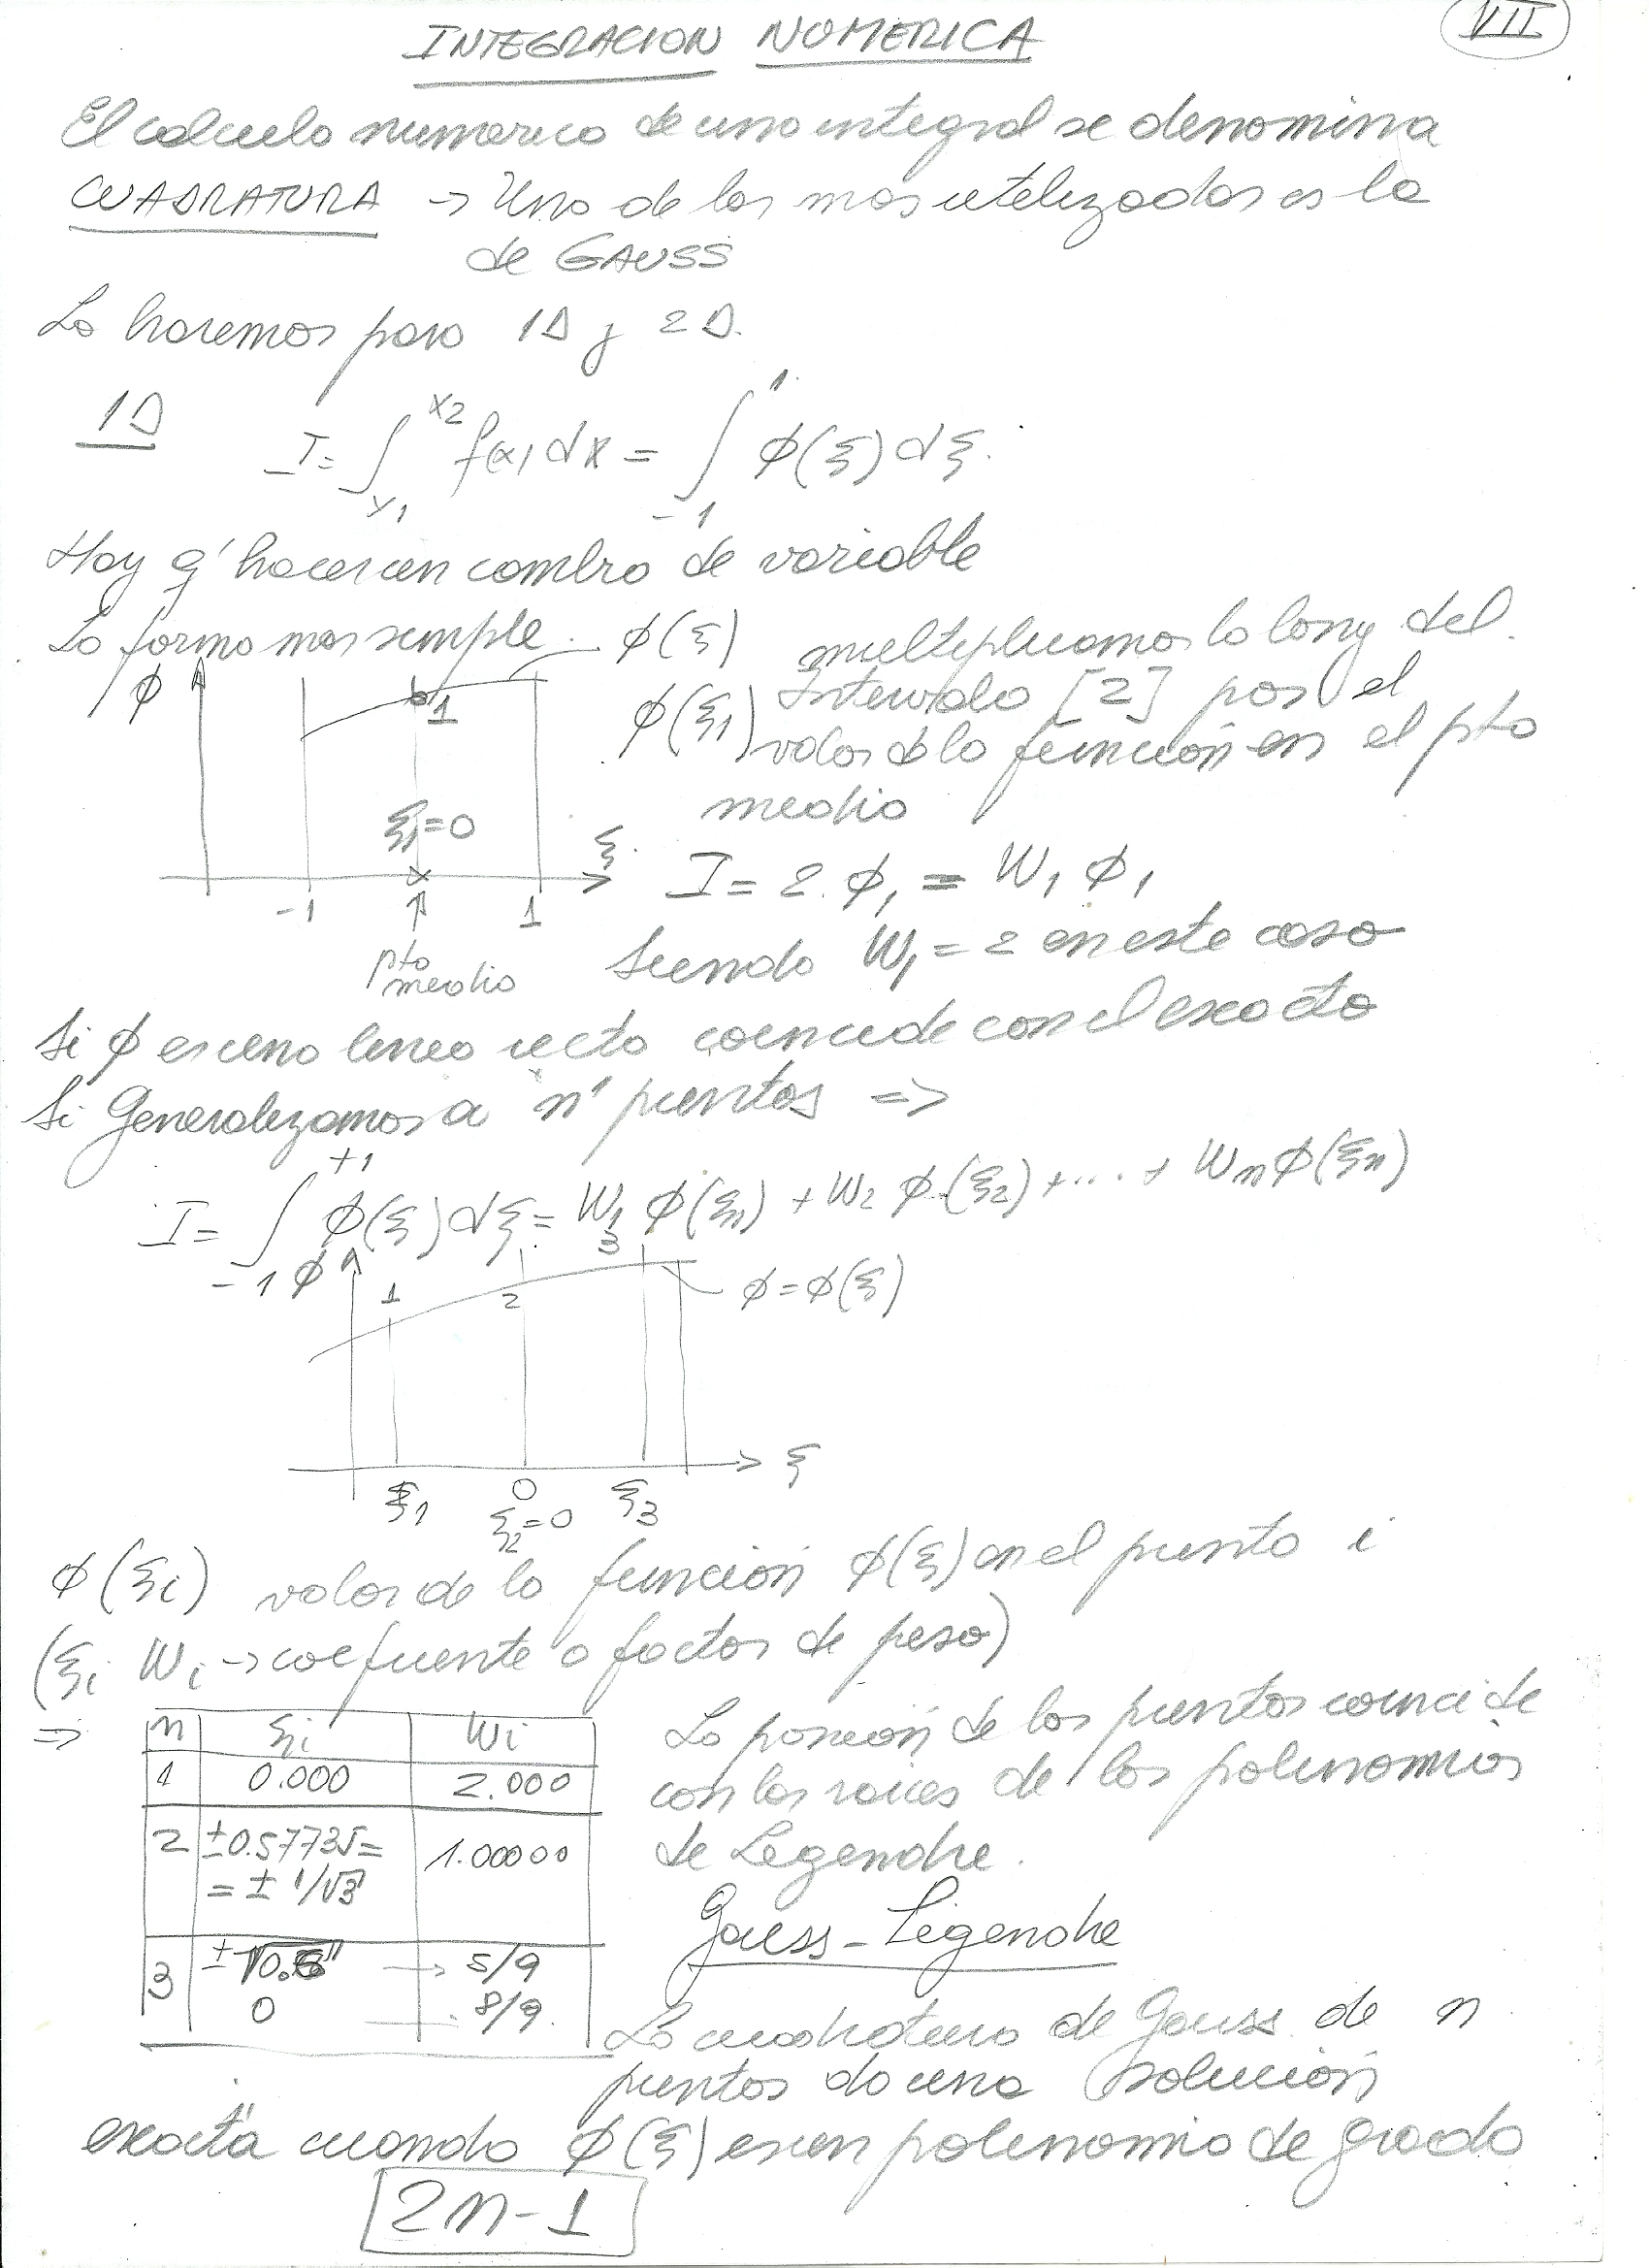 VII
INTEGRACION NUMERICA
El calculo numerico de una integral se denomina
CUADRATURA → Una de las mas utilizadas es la
de GAUSS
Lo haremos para 1D y 2D.
1D I = ∫_{x1}^{x2} f(x) dx = ∫_{-1}^{1} ϕ(ξ) dξ.
Hay q' hacer un cambio de variable
La forma mas simple. ϕ(ξ) multiplicamos la long del
ϕ 1 ϕ(ξ1) Intervalo [2] por el
valor d la función en el pto
medio
ξ1=0 ξ
I = 2.ϕ1 = W1 ϕ1
-1 1
pto medio
Siendo W1 = 2 en este caso
Si ϕ es una linea recta coincide con el exacto
Si Generalizamos a 'n' puntos =>
I = ∫_{-1}^{+1} ϕ(ξ) dξ = W1 ϕ(ξ1) + W2 ϕ(ξ2) + ... + Wn ϕ(ξn)
ϕ 1 2 3 ϕ=ϕ(ξ)
ξ
ξ1 0 ξ3
ξ2=0
ϕ(ξi) valor de la función ϕ(ξ) en el punto i
(ξi Wi → coeficiente o factor de peso)
=> n ξi Wi
1 0.000 2.000
2 ±0.57735= 1.00000
= ± 1/√3
3 ±√0.6 → 5/9
0 8/9
La posición de los puntos coincide
con las raices de los polinomios
de Legendre.
Gauss-Legendre
La cuadratura de Gauss de n
puntos da una solución
"exacta" cuando ϕ(ξ) es un polinomio de grado
2n-1